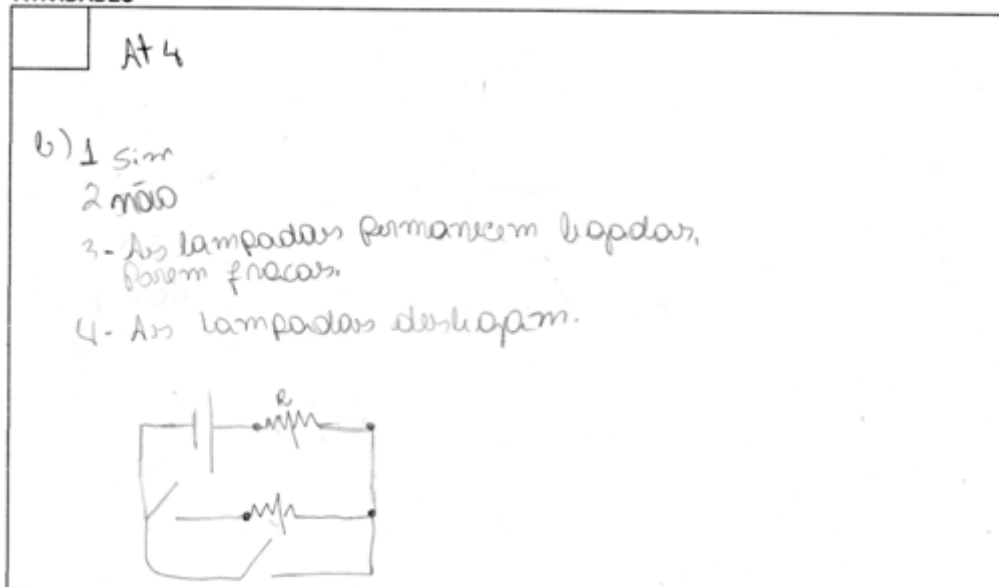 At 4
b) 1 sim
2 não
3- As lampadas permanecem ligadas,
Porem fracas.
4- As lampadas desligam.
R